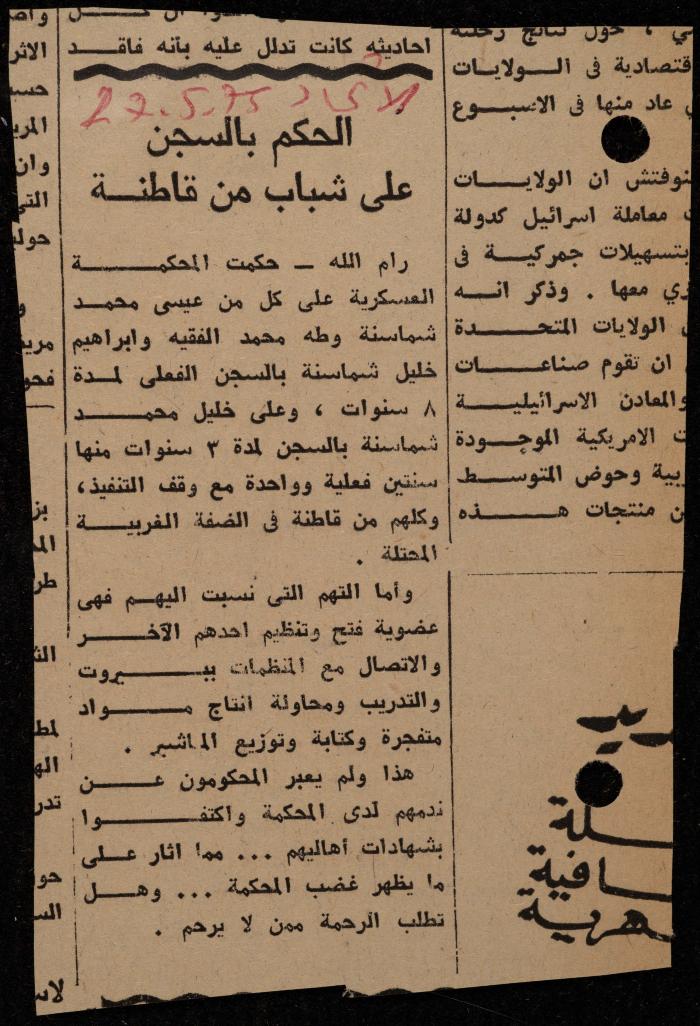 احاديثه كانت تدلل عليه بأنه فاقد
الاتحاد 27.5.75
الحكم بالسجن
على شباب من قاطنة
رام الله - حكمت المحكمة
العسكرية على كل من عيسى محمد
شماسنة وطه محمد الفقيه وابراهيم
خليل شماسنة بالسجن الفعلى لمدة
٨ سنوات ، وعلى خليل محمد
شماسنة بالسجن لمدة ٣ سنوات منها
سنتين فعلية وواحدة مع وقف التنفيذ،
وكلهم من قاطنة فى الضفة الغربية
المحتلة .
وأما التهم التى نسبت اليهم فهى
عضوية فتح وتنظيم احدهم الآخر
والاتصال مع المنظمات ببيروت
والتدريب ومحاولة انتاج مواد
متفجرة وكتابة وتوزيع المناشير .
هذا ولم يعبر المحكومون عن
ندمهم لدى المحكمة واكتفوا
بشهادات أهاليهم ... مما اثار على
ما يظهر غضب المحكمة ... وهل
تطلب الرحمة ممن لا يرحم .
ي ، حول نتائج رحلته
قتصادية فى الولايات
ي عاد منها فى الاسبوع
نوفتش ان الولايات
معاملة اسرائيل كدولة
بتسهيلات جمركية فى
ري معها . وذكر انه
الولايات المتحدة
ان تقوم صناعات
والمعادن الاسرائيلية
ت الامريكية الموجودة
ربية وحوض المتوسط
ن منتجات هذه
سلة
افية
هرية
الاثر
حسب
المري
وان
التي
حول
مريض
فحو
بز
الم
طر
الث
لمط
اله
تدر
حو
الس